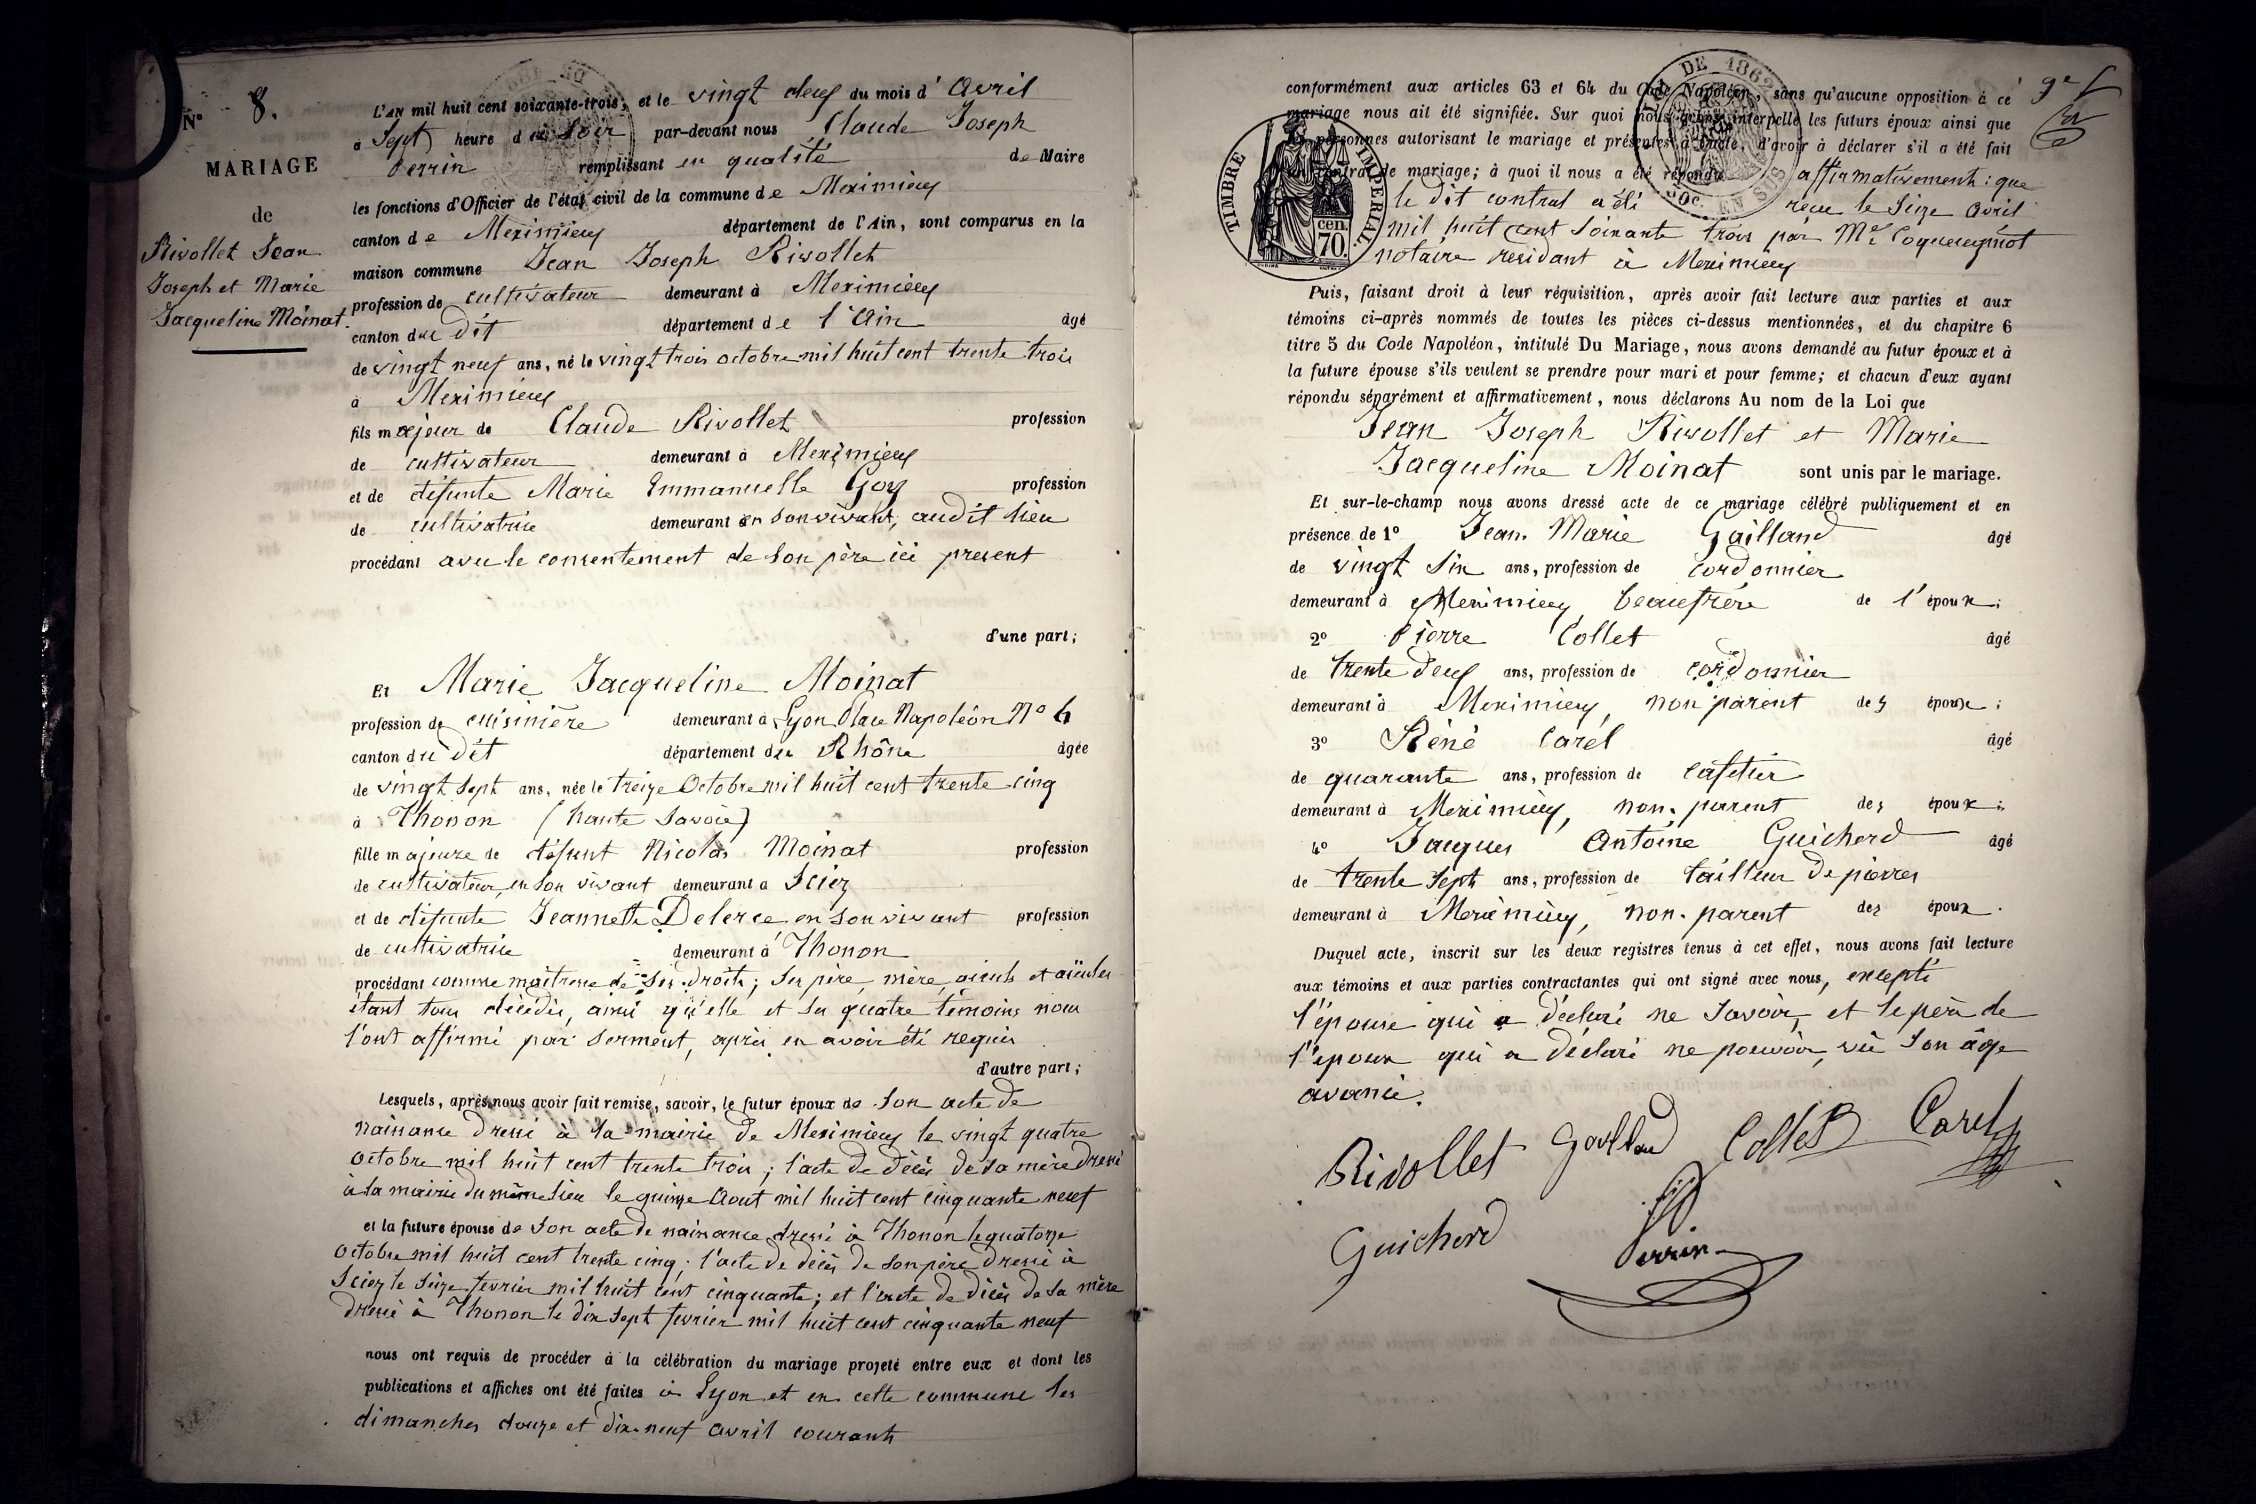 N° 8.
MARIAGE
de
Rivollet Jean
Joseph et Marie
Jacqueline Moinat.
L'AN mil huit cent soixante-trois, et le vingt deux du mois d'Avril
à Sept heure du Soir par-devant nous Claude Joseph
Perrin remplissant en qualité de Maire
les fonctions d'Officier de l'état civil de la commune de Meximieux
canton de Meximieux département de l'Ain, sont comparus en la
maison commune Jean Joseph Rivollet
profession de cultivateur demeurant à Meximieux
canton du dit département de l'Ain âgé
de vingt neuf ans, né le vingt trois octobre mil huit cent trente trois
à Meximieux
fils majeur de Claude Rivollet profession
de cultivateur demeurant à Meximieux
et de défunte Marie Emmanuelle Goy profession
de cultivatrice demeurant en son vivant, audit lieu
procédant avec le consentement de son père ici present
d'une part;
Et Marie Jacqueline Moinat
profession de cuisinière demeurant à Lyon Place Napoléon N° 4
canton du dit département du Rhône âgée
de vingt sept ans, née le treize Octobre mil huit cent trente cinq
à Thonon (haute Savoie)
fille majeure de défunt Nicolas Moinat profession
de cultivateur, en son vivant demeurant à Sciez
et de défunte Jeannette Delerce en son vivant profession
de cultivatrice demeurant à Thonon
procédant comme maitresse de ses droits; ses père, mère, aieuls et aïeules
étant tous décédés, ainsi qu'elle et ses quatre témoins nous
l'ont affirmé par serment, après en avoir été requis
d'autre part;
Lesquels, après nous avoir fait remise, savoir, le futur époux de son acte de
naissance dressé à la mairie de Meximieux le vingt quatre
octobre mil huit cent trente trois; l'acte de décès de sa mère dressé
à la mairie du même lieu le quinze Aout mil huit cent cinquante neuf
et la future épouse de son acte de naissance dressé à Thonon le quatorze
Octobre mil huit cent trente cinq; l'acte de décès de son père dressé à
Sciez le seize fevrier mil huit cent cinquante; et l'acte de décès de sa mère
dressé à Thonon le dix sept fevrier mil huit cent cinquante neuf
nous ont requis de procéder à la célébration du mariage projeté entre eux et dont les
publications et affiches ont été faites à Lyon et en cette commune les
dimanches douze et dix-neuf avril courant
conformément aux articles 63 et 64 du Code Napoléon, sans qu'aucune opposition à ce
mariage nous ait été signifiée. Sur quoi nous avons interpellé les futurs époux ainsi que
les personnes autorisant le mariage et présentes à l'acte, d'avoir à déclarer s'il a été fait
un contrat de mariage; à quoi il nous a été répondu affirmativement: que
le dit contrat a été reçu le Seize avril
mil huit cent soixante trois par Me Coqueugniot
notaire residant à Meximieux
TIMBRE IMPERIAL.
70. cen.
DE 1862
10c. EN SUS
Puis, faisant droit à leur réquisition, après avoir fait lecture aux parties et aux
témoins ci-après nommés de toutes les pièces ci-dessus mentionnées, et du chapitre 6
titre 5 du Code Napoléon, intitulé Du Mariage, nous avons demandé au futur époux et à
la future épouse s'ils veulent se prendre pour mari et pour femme; et chacun d'eux ayant
répondu séparément et affirmativement, nous déclarons Au nom de la Loi que
Jean Joseph Rivollet et Marie
Jacqueline Moinat sont unis par le mariage.
Et sur-le-champ nous avons dressé acte de ce mariage célébré publiquement et en
présence de 1° Jean Marie Gailland âgé
de vingt six ans, profession de cordonnier
demeurant à Meximieux beaufrère de l'époux;
2° Pierre Collet âgé
de trente deux ans, profession de cordonnier
demeurant à Meximieux, non parent des époux;
3° Réné Carel âgé
de quarante ans, profession de cafetier
demeurant à Meximieux, non. parent des époux;
4° Jacques Antoine Guicherd âgé
de trente sept ans, profession de tailleur de pierres
demeurant à Meximieux, non. parent des époux.
Duquel acte, inscrit sur les deux registres tenus à cet effet, nous avons fait lecture
aux témoins et aux parties contractantes qui ont signé avec nous, excepté
l'épouse qui a déclaré ne savoir, et le père de
l'époux qui a déclaré ne pouvoir, vû son âge
avancé.
Rivollet Gailland Collet Carel
Guicherd Perrin